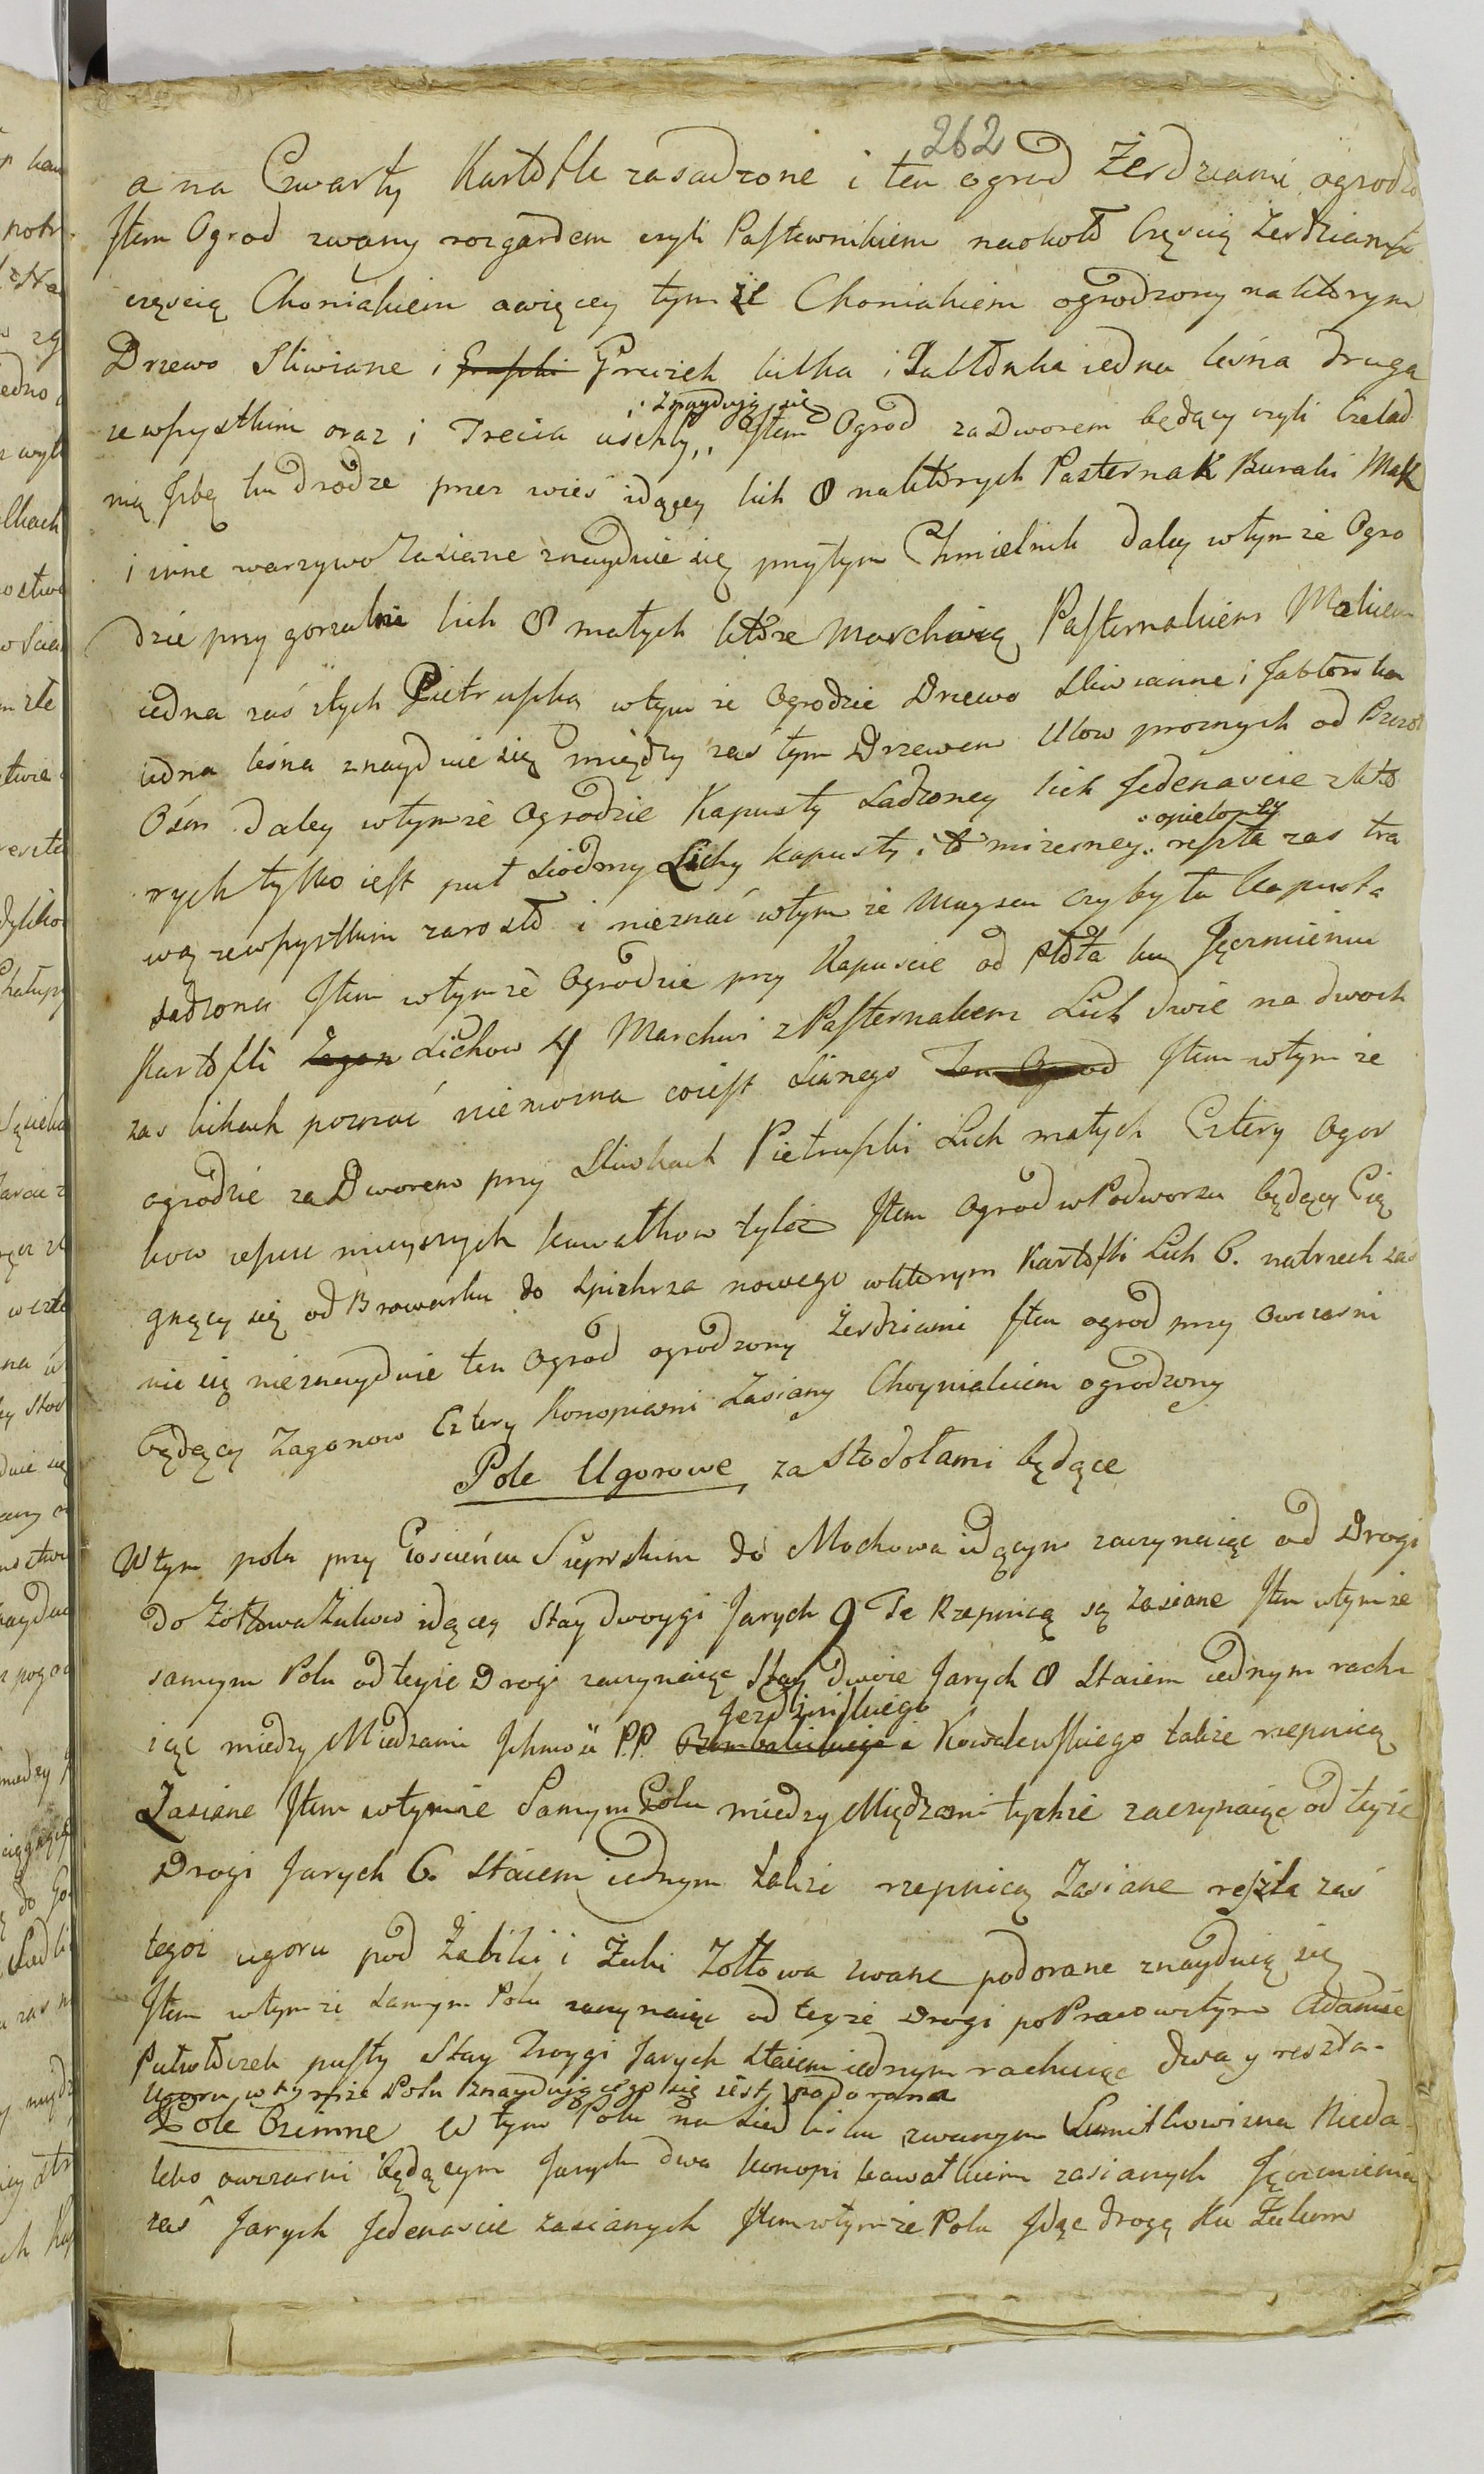 262
a na Czwarty Kartofle zasadzone i ten ogrod Żerdziami ogrodzo
Jtem Ogrod zwany rozgardem czyli Pastewnikiem naokoło Częscią Żerdziami
częscią Choniakiem awięcey tym że Choniakiem ogrodzony naktorym
Drzewo Sliwiane i Gruszek kilka i Jabłonka iedna leśna druga
zewszystkim oraz i Trecia uschły,, Jtem Ogrod za Dworem będący czyli Czelad
:znayduią się
nią Jzbę ku drodze przez wieś idącey lich 8 naktorych Pasternak Buraki Mak
i inne warzywo Zasiane znayduie się przytym Chmielnik daley wtymże Ogro
dzie przy gorzalni lich 8 małych ktore Marchwią Pasternakiem Makiem
iedna zaś ztych Pietruszką wtym że Ogrodzie Drzewo Sliwianne i Jabłonka
iedna leśna znayduie się między zas tym Drzewem Ulow proznych od Pszczoł
Ośm daley wtymże Ogrodzie Kapusty Sadzoney lich Jedenascie z kto
rych tylko iest puł siodmy Lichy kapusty i to mizerney. reszta zas tra
opieloney
wą zewszystkim zarosło i nieznać wtym że mieyscu czy była kapusta
sadzona Jtem wtymże Ogrodzie przy Kapuscie od płota ku Jęczmieniu
Kartofli Zagon Lichow 4 Marchwi z Pasternakiem Lich dwie na dwoch
zas lichach poznać niemozna coiest sianego Ten Ogrod Jtem wtym że
ogrodzie za Dworem przy Sliwkach Pietruszki Lich małych Cztery Ogor
kow mieyszych kawałkow tyloż Jtem Ogrod w Podworzu będący Cią
gnący się od Browarku do Spichrza nowego wktorym Kartofli Lich 6. natrzech zas
nic się nieznayduie ten Ogrod ogrodzony Żerdziami Jtem ogrod przy Owczarni
będący Zagonow Cztery Konopiami Zasiany Choyniakiem ogrodzony
Pole Ugorowe za Stodołami będące
Wtym polu przy Gosciencu Sieprskim do Mochowa idącym zaczynaiąc od Drogi
do Zołtowa Zukow idącey Stay dwoygi Jarych 9 Te Rzepnicą są zasiane Jtem wtymże
samym Polu od teyże Drogi zaczynaiąc Stay dwoie Jarych 8 Staiem iednym rachu
iąc miedzy Miedzami Jchmość P.P. i Kowalewskiego także rzepnicą
Jezdzinskiego
Zasiane Jtem wtymże Samym Polu miedzy Miedzami tychże zaczynaiąc od teyże
Drogi Jarych 6. Staiem iednym także rzepnicą Zasiane reszta zaś
tegoż ugoru pod Żabiki i Żuki Zołtowa zwane podorane znayduią się
Jtem wtymże samym Polu zaczynaiąc od teyże Drogi po Pracowitym Adamie
pusty Stay Troygi Jarych Staiem iednym rachuiąc dwa y reszta
Ugoru w tymże Polu znayduiącego się iest podorana
Pole Ozimne W tym Polu na Siedlisku zwanym Nieda
leko owczarni będącym Jarych dwa konopi kawałkiem zasianych Jęczmienia
zaś Jarych Jedenascie zasianych Jtem wtymże Polu Jdąc drogą Ku Zukom